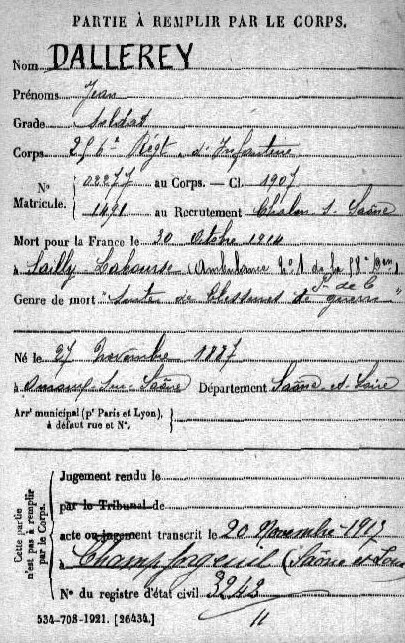 PARTIE À REMPLIR PAR LE CORPS.
Nom DALLEREY
Prénoms Jean
Grade Soldat
Corps 256e Régt d'Infanterie
N° 02277 au Corps. — Cl. 1907
Matricule. 1491 au Recrutement Chalon s. Saône
Mort pour la France le 30 Octobre 1914
à Sailly Labourse (Ambulance N° 1 de la 58e Don)
Genre de mort "Suites de blessures de guerre"
Né le 27 Novembre 1887
à sur Saône Département Saône et Loire
Arrt municipal (pr Paris et Lyon),
à défaut rue et N°.
Cette partie
n'est pas à remplir
par le Corps.
Jugement rendu le
par le Tribunal de
acte ou jugement transcrit le 20 Novembre 1917
à Champforgeuil (Saône et Loire
N° du registre d'état civil 3243
534-708-1921. [26434.]